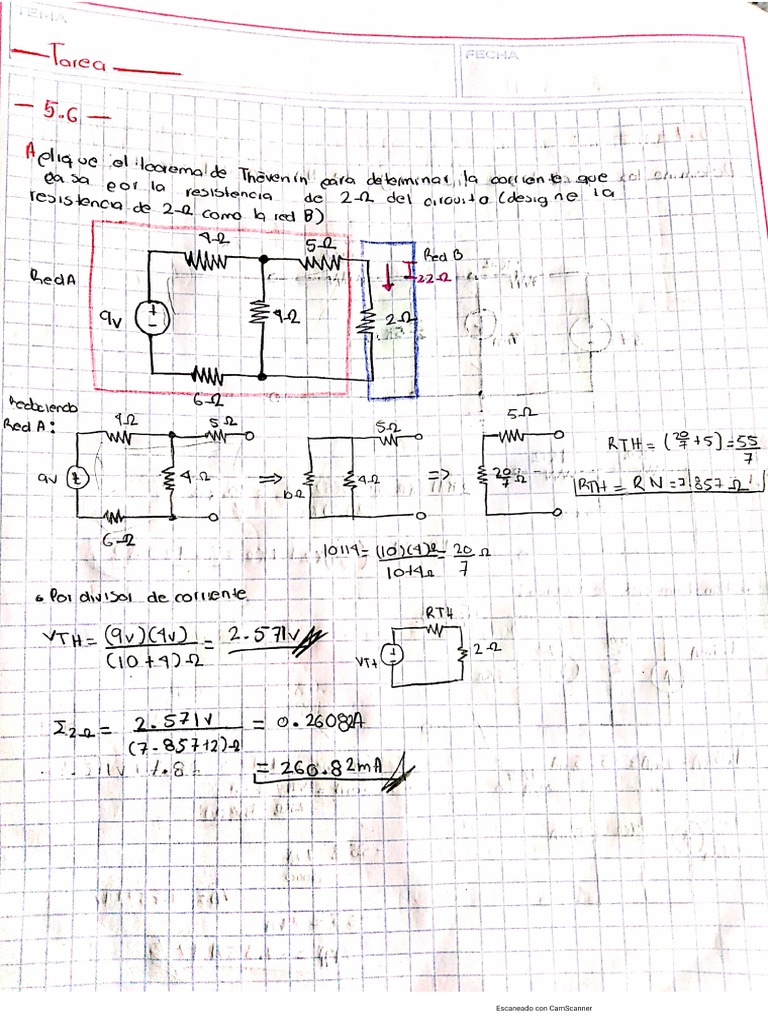 TEMA
FECHA
Tarea
- 5.6 -
Aplique el teorema de Thévenin para determinar la corriente que
pasa por la resistencia de 2Ω del circuito (designe la
resistencia de 2Ω como la red B)
4Ω
5Ω
Red B
Red A
I2Ω
9v
4Ω
2Ω
6Ω
Reduciendo
Red A:
4Ω
5Ω
9v
4Ω
6Ω
⇒
5Ω
10Ω
4Ω
⇒
5Ω
20/7 Ω
RTH = (20/7 + 5) = 55/7
RTH = RN = 7.857 Ω
10||4 = (10)(4)Ω / 10+4Ω = 20/7 Ω
Por divisor de corriente
VTH = (9v)(4v) / (10+4)Ω = 2.571v
RTH
VT+
2Ω
I2Ω = 2.571v / (7.857+2)Ω = 0.26082A
= 260.82mA
Escaneado con CamScanner